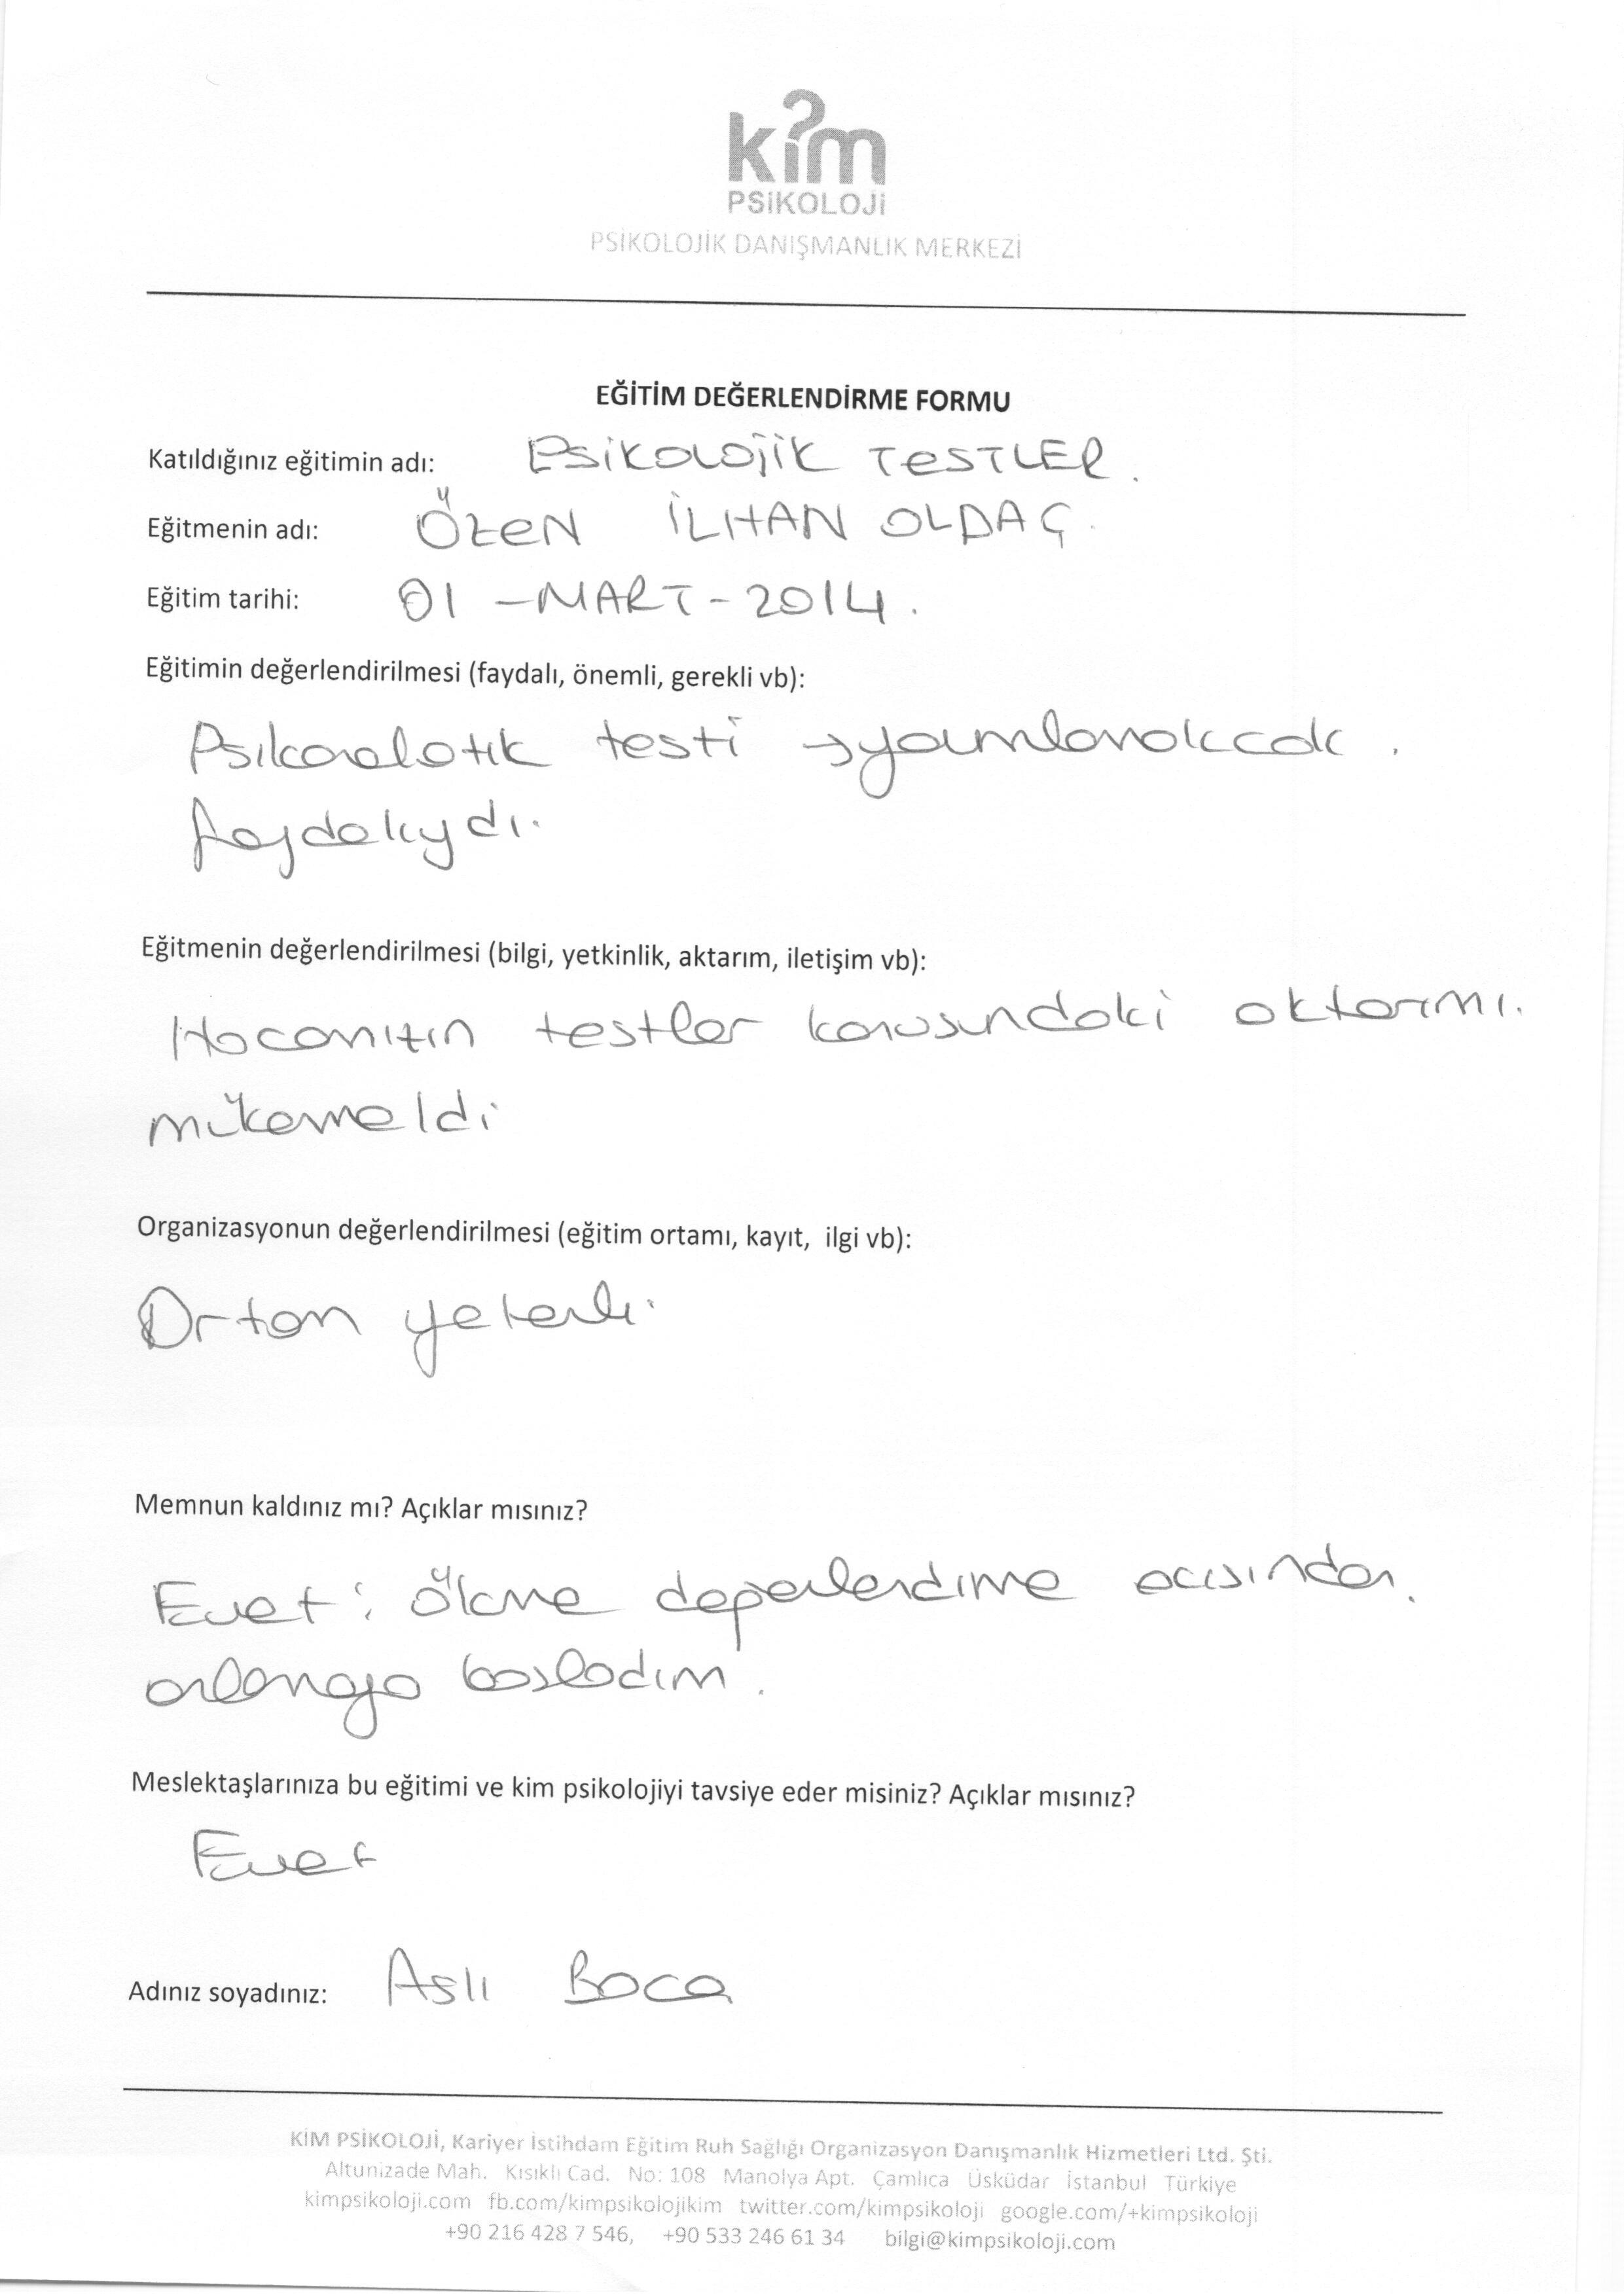 kim
PSİKOLOJİ
PSİKOLOJİK DANIŞMANLIK MERKEZİ
EĞİTİM DEĞERLENDİRME FORMU
Katıldığınız eğitimin adı: PSİKOLOJİK TESTLER.
Eğitmenin adı: ÖZEN İLHAN OLDAÇ.
Eğitim tarihi: 01 - MART - 2014.
Eğitimin değerlendirilmesi (faydalı, önemli, gerekli vb):
testi →
faydalıydı.
Eğitmenin değerlendirilmesi (bilgi, yetkinlik, aktarım, iletişim vb):
Hocamızın testler konusundaki aktarımı.
mükemeldi
Organizasyonun değerlendirilmesi (eğitim ortamı, kayıt, ilgi vb):
Ortam yeterli.
Memnun kaldınız mı? Açıklar mısınız?
Evet; ölçme değerlendirme açısından.
başladım.
Meslektaşlarınıza bu eğitimi ve kim psikolojiyi tavsiye eder misiniz? Açıklar mısınız?
Evet
Adınız soyadınız: Aslı Boca
KİM PSİKOLOJİ, Kariyer İstihdam Eğitim Ruh Sağlığı Organizasyon Danışmanlık Hizmetleri Ltd. Şti.
Altunizade Mah. Kısıklı Cad. No: 108 Manolya Apt. Çamlıca Üsküdar İstanbul Türkiye
kimpsikoloji.com fb.com/kimpsikolojikim twitter.com/kimpsikoloji google.com/+kimpsikoloji
+90 216 428 7 546, +90 533 246 61 34 bilgi@kimpsikoloji.com